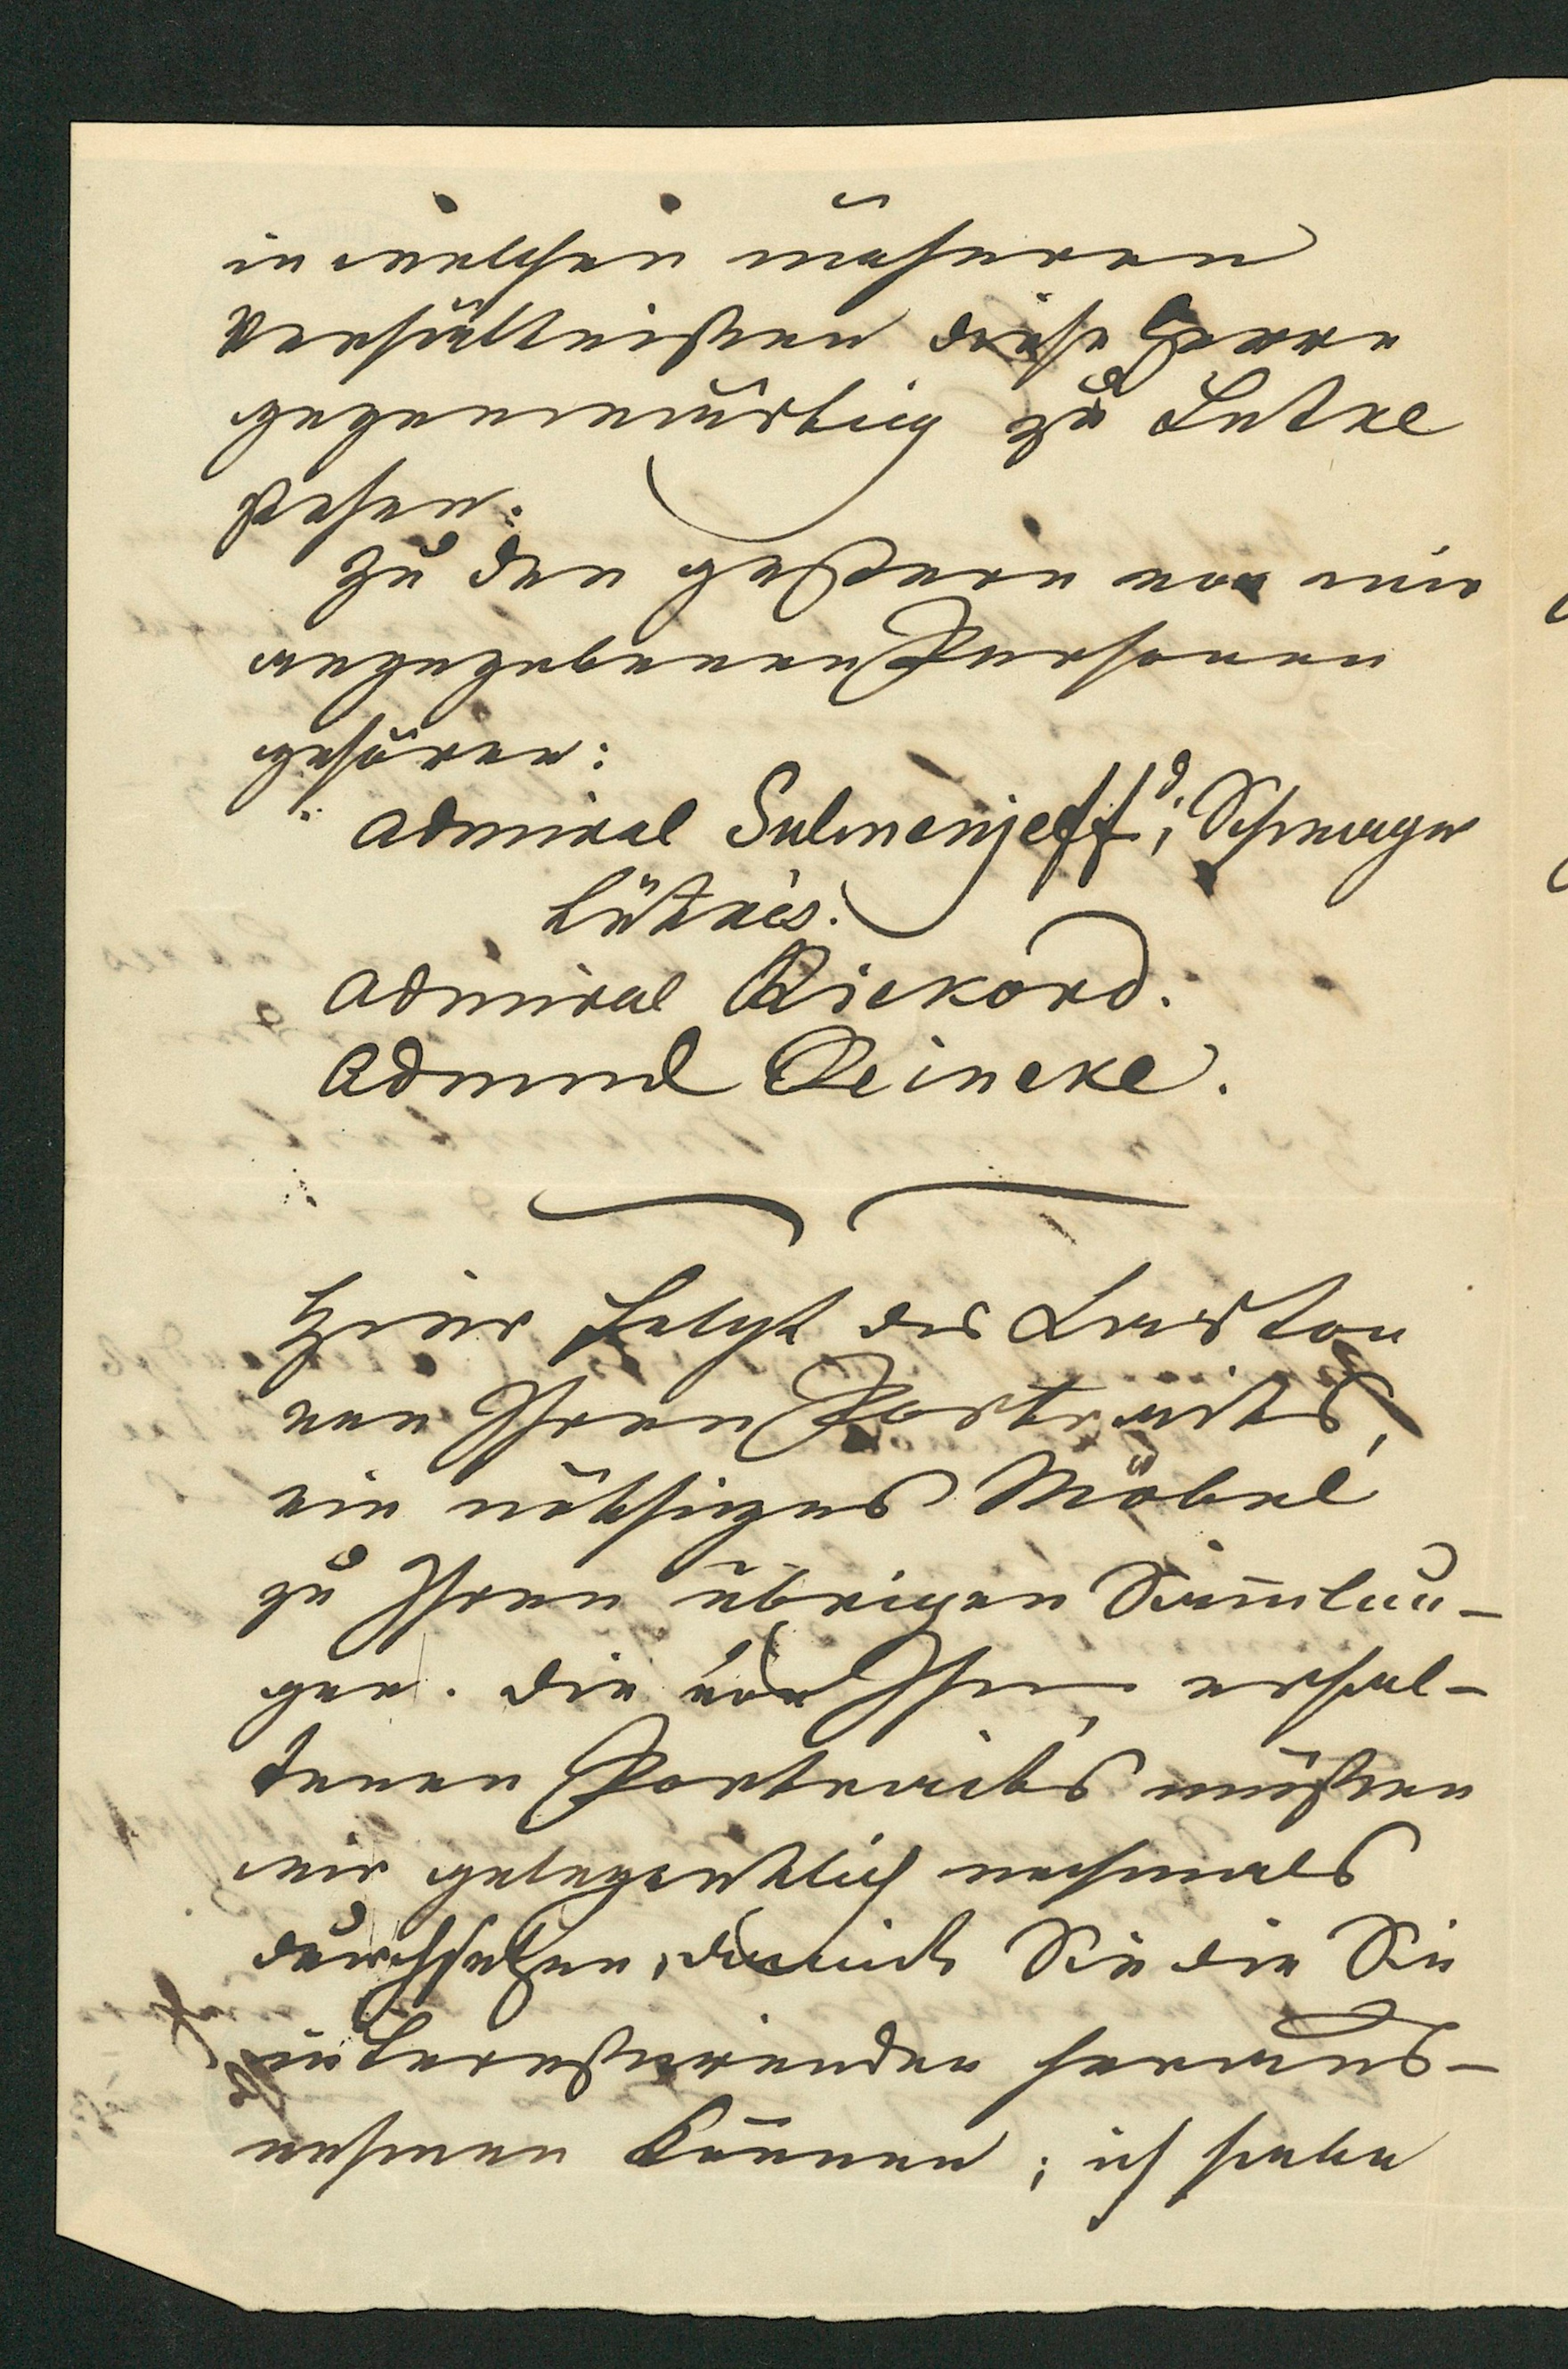 in welchen näheren
Verhältnißen diese Herrn
gegenwärtig zu Lutke
stehen.
Zu den gestern von mir
angegebenen Personen
gehören:
Admiral Sulmenjeff, d. Schwager
Lütkes.
Admiral Rickord.
Admiral Reineke.
Hier folgt der Karton
von Ihren Porträits,
ein nöthiges Möbel
zu Ihren übrigen Sam̅lun-
gen. Die von Ihnen erhal-
tenen Portraits müßen
wir gelegentlich nochmals
durchsehen, damit Sie die Sie
interessirenden heraus-
nehmen können; ich habe